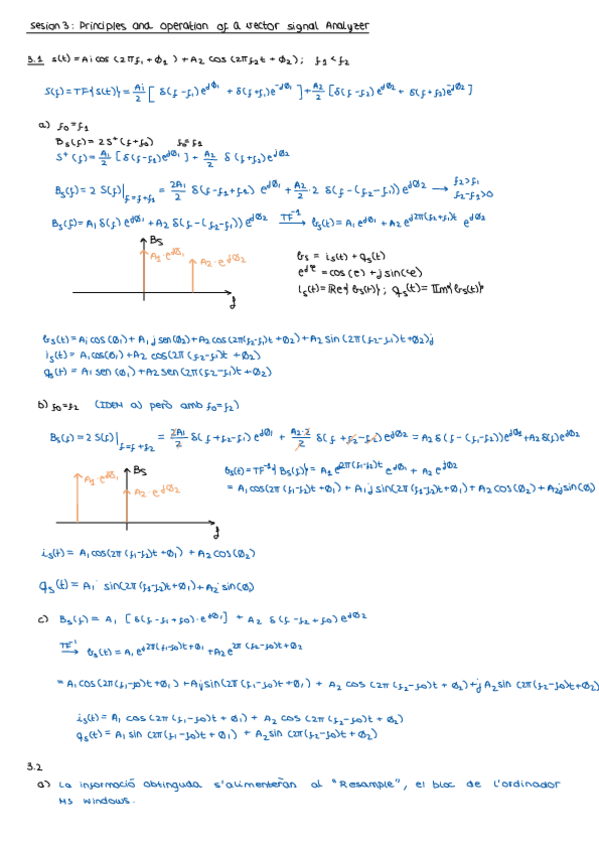 Sesion 3: Principles and operation of a vector signal Analyzer
3.1 s(t) = A₁ cos (2πf₁ + ϕ₁) + A₂ cos (2πf₂t + ϕ₂); f₁ < f₂
S(f) = TF{s(t)} = A₁/2 [δ(f-f₁)e^jϕ₁ + δ(f+f₁)e^-jϕ₁] + A₂/2 [δ(f-f₂)e^jϕ₂ + δ(f+f₂)e^-jϕ₂]
a) f₀=f₁
Bs(f) = 2 S⁺(f+f₀) f₀=f₁
S⁺(f) = A₁/2 [δ(f-f₁)e^jϕ₁] + A₂/2 δ(f+f₂)e^jϕ₂
Bs(f) = 2 S(f)|f=f+f₁ = 2A₁/2 δ(f-f₁+f₁) e^jϕ₁ + A₂/2 · 2 δ(f-(f₂-f₁))e^jϕ₂ → f₂>f₁ f₂-f₁>0
Bs(f) = A₁ δ(f) e^jϕ₁ + A₂ δ(f-(f₂-f₁))e^jϕ₂ TF⁻¹ → bs(t) = A₁ e^jϕ₁ + A₂ e^j2π(f₂+f₁)t e^jϕ₂
Bs
A₁·e^jϕ₁
A₂·e^jϕ₂
f
bs = is(t) + qs(t)
e^jφ = cos(φ) + j sin(φ)
is(t) = Re{bs(t)}; qs(t) = Im{bs(t)}
bs(t) = A₁ cos(ϕ₁) + A₁ j sen(ϕ₂) + A₂ cos(2π(f₂-f₁)t + ϕ₂) + A₂ sin(2π(f₂-f₁)t+ϕ₂)j
is(t) = A₁ cos(ϕ₁) + A₂ cos(2π(f₂-f₁)t + ϕ₂)
qs(t) = A₁ sen(ϕ₁) + A₂ sen(2π(f₂-f₁)t + ϕ₂)
b) f₀=f₂ (IDEM a) però amb f₀=f₂)
Bs(f) = 2 S(f)|f=f+f₂ = 2A₁/2 δ(f+f₂-f₁)e^jϕ₁ + A₂·2/2 δ(f+f₂-f₂)e^jϕ₂ = A₂ δ(f-(f₁-f₂))e^jϕ₂ + A₂ δ(f)e^jϕ₂
Bs
A₁·e^jϕ₁
A₂·e^jϕ₂
f
bs(t) = TF⁻¹{Bs(f)} = A₁ e^2π(f₁-f₂)t e^jϕ₁ + A₂ e^jϕ₂
= A₁ cos(2π(f₁-f₂)t + ϕ₁) + A₁ j sin(2π(f₁-f₂)t+ϕ₁) + A₂ cos(ϕ₂) + A₂j sin(ϕ)
is(t) = A₁ cos(2π(f₁-f₂)t + ϕ₁) + A₂ cos(ϕ₂)
qs(t) = A₁ sin(2π(f₁-f₂)t+ϕ₁) + A₂ sin(ϕ)
c) Bs(f) = A₁ [δ(f-f₁+f₀)·e^jϕ₁] + A₂ δ(f-f₂+f₀)e^jϕ₂
TF⁻¹ → bs(t) = A₁ e^j2π(f₁-f₀)t+ϕ₁ + A₂ e^2π(f₂-f₀)t+ϕ₂
= A₁ cos(2π(f₁-f₀)t + ϕ₁) + A₁j sin(2π(f₁-f₀)t + ϕ₁) + A₂ cos(2π(f₂-f₀)t + ϕ₂) + j A₂ sin(2π(f₂-f₀)t+ϕ₂)
is(t) = A₁ cos(2π(f₁-f₀)t + ϕ₁) + A₂ cos(2π(f₂-f₀)t + ϕ₂)
qs(t) = A₁ sin(2π(f₁-f₀)t + ϕ₁) + A₂ sin(2π(f₂-f₀)t + ϕ₂)
3.2
a) La informació obtinguda s'alimenteran al "Resample", el bloc de l'ordinador
MS Windows.